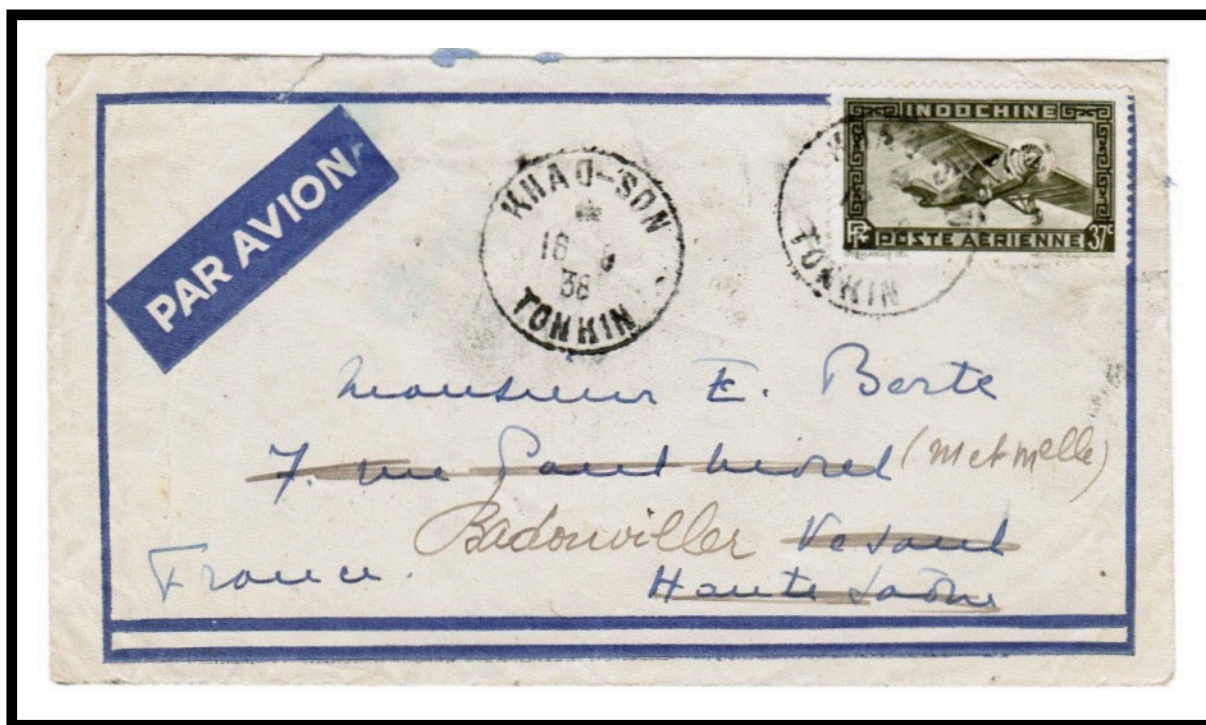 PAR AVION
KHAO-SON
18 8
38
TONKIN
INDOCHINE
RF POSTE AERIENNE 37c
TONKIN
Monsieur E. Berte
7. rue Paul Morel (Met melle)
Badonviller Vesoul
France. Haute Saône